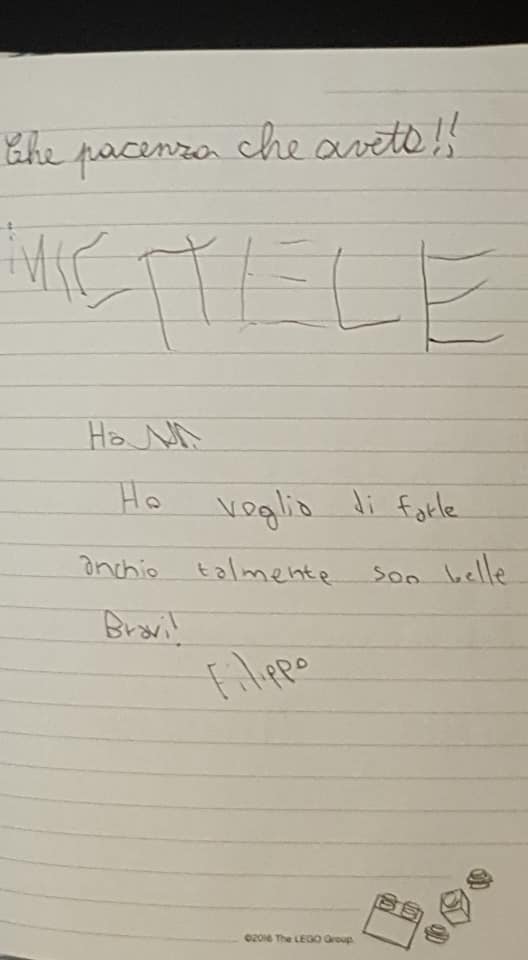 Che pacenza che avete!!
Ho
Ho voglia di farle
anchio talmente son belle
Bravi!
Filippo
©2016 The LEGO Group.